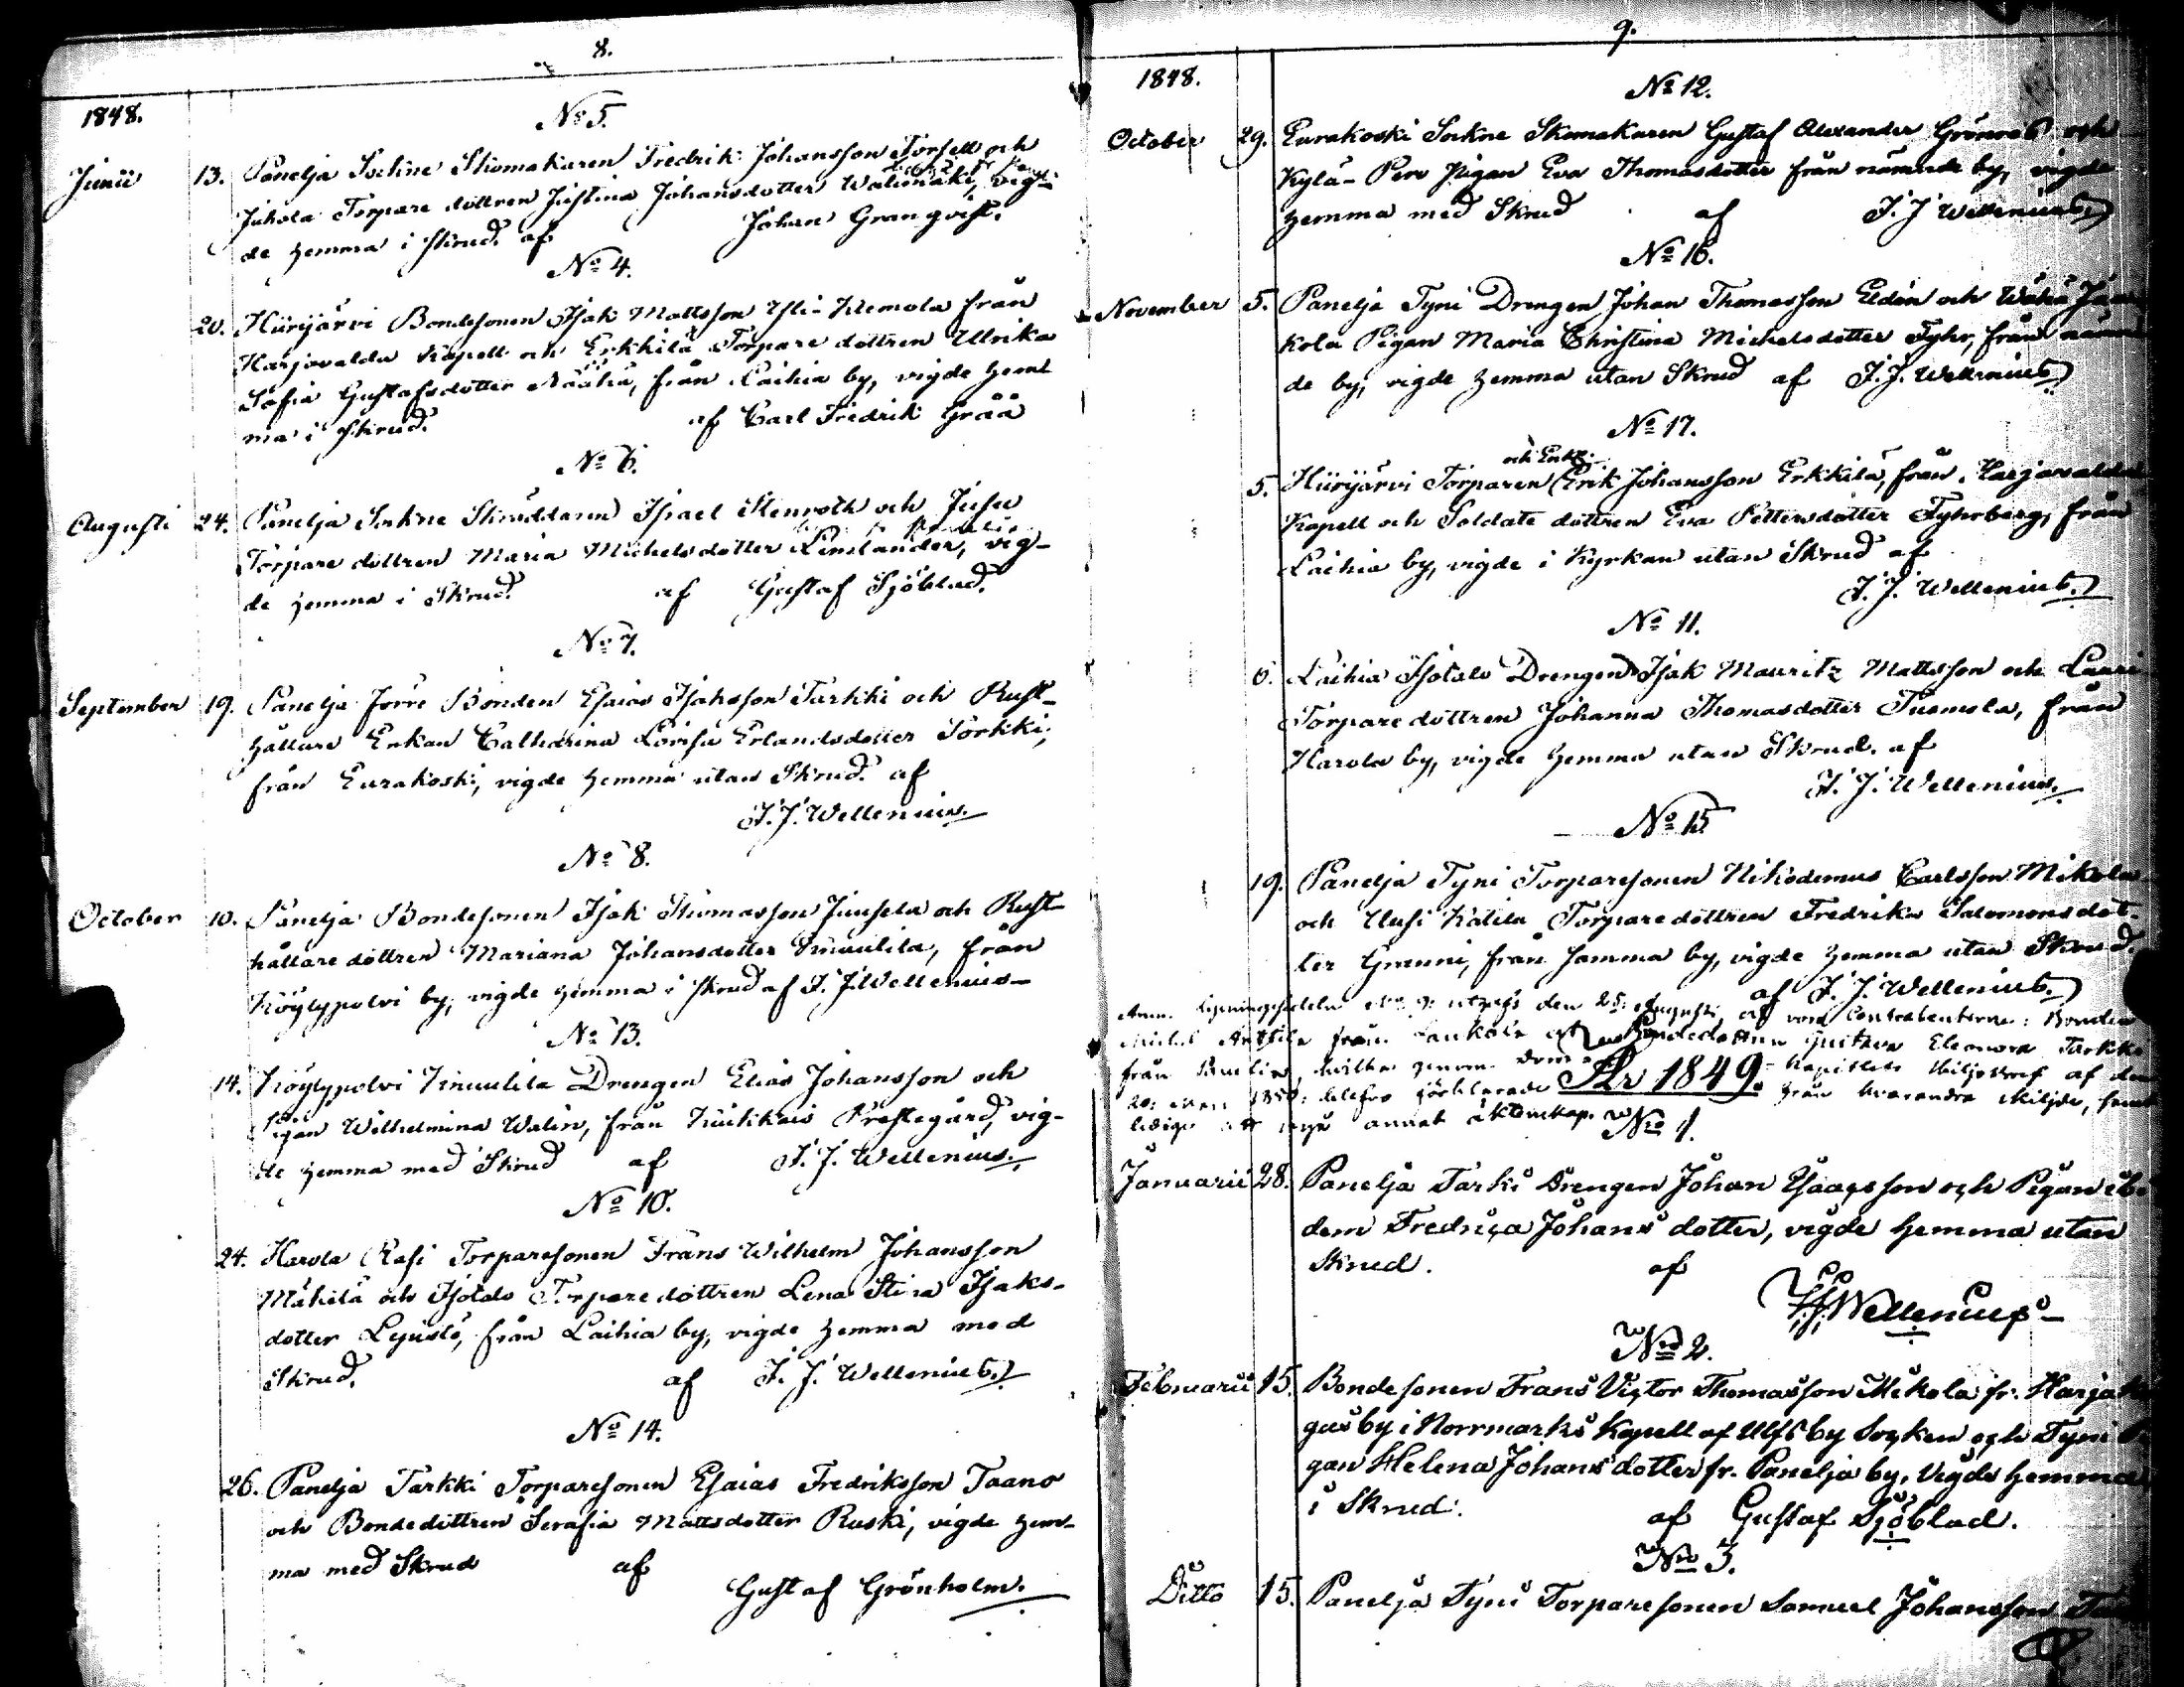 8.
1848.
No 5.
Junii 13. Panelja Sockne Skomakaren Fredrik Johansson Torsell och
Jukola Torpare dottren Justina Johansdotter Walimäki, vig-
de hemma i skrud. af Johan Granqvist.
No 4.
20. Hiirijärvi Bondesonen Isak Mattsson Yli-Klemola från
Harjavalda Kapell och Erkkilä Torpare dottren Ulrika
Sofia Gustafsdotter från Laihia by, vigde hem-
ma i skrud. af Carl Fredrik Grää
No 6.
Augusti 24. Panelja Sockne Skräddaren Israel Stenroth och Jusu
Torpare dottren Maria Michelsdotter vig-
de hemma i Skrud. af Gustaf Sjöblad.
No 7.
September 19. Panelja Jorre Bonden Esaias Isaksson Tarkki och Rust-
hållare Enkan Catharina Lovisa Erlandsdotter Torkki,
från Eurakoski, vigde hemma utan Skrud. af
I. J. Wellenius.
No 8.
October 10. Panelja Bondesonen Isak Thomasson Juusela och Rust-
hållare dottren Mariana Johansdotter Knuulila, från
Köylypolvi by, vigde hemma i skrud af I. J. Wellenius
No 13.
14. Köylypolvi Knuulila Drengen Elias Johansson och
Pigan Wilhelmina Walin, från Kiukkais Prestegård, vig-
de hemma med Skrud af I. J. Wellenius.
No 10.
24. Harola Rasi Torparesonen Frans Wilhelm Johansson
Mäkilä och Isotalo Torpare dottren Lena Stina Isaks-
dotter från Laihia by, vigde hemma med
Skrud. af I. J. Wellenius.
No 14.
26. Panelja Tarkki Torparesonen Esaias Fredriksson Taano
och Bondedottren Serafia Mattsdotter Ruski, vigde hem-
ma med Skrud af
Gustaf Grönholm.
9.
1848.
No 12.
October 29. Eurakoski Sockne Skomakaren Gustaf Alexander Grönroos och
Kylä-Pere Pigan Eva Thomasdotter från nämnde by, vigde
hemma med Skrud af I. J. Wellenius.
No 16.
November 5. Panelja Tyni Drengen Johan Thomasson Eldén och Wähä
kola Pigan Maria Christina Michelsdotter Tyhr, från
de by, vigde hemma utan Skrud af I. J. Wellenius
No 17.
och Enkl.
5. Hiirijärvi Torparen Erik Johansson Erkkilä, från Harjavalda
Kapell och Soldate dottren Eva Pettersdotter Fyhrberg, från
Laihia by, vigde i Kyrkan utan Skrud af
I. J. Wellenius.
No 11.
6. Laihia Isotalo Drengen Isak Mauritz Mattsson och Lauri
Torpare dottren Johanna Thomasdotter Tuomola, från
Harola by, vigde hemma utan Skrud. af
I. J. Wellenius.
No 15
19. Panelja Tyni Torparesonen Nikodemus Carlsson Mikola
och Uusi Kätilä Torpare dottren Fredrika Salomonsdot-
ter Grenni, från samma by, vigde hemma utan Skrud.
af I. J. Wellenius.
Anm. Lysningssedeln No 9: uttogs den 25 Augusti, af contrahenterne: Bonden
Michel Anttila från och Bondedottren Gustava Eleonora Tarkki
från Panelia, hvilka genom Dom Kapitlets Skiljobref af den
20: 1850: blefvo förklarade från hvarandra skiljde,
lediga att ingå annat äktenskap.
År 1849.
No 1.
Januarii 28. Panelja Tarki Drengen Johan Esaiasson och Pigan ibi-
dem Fredrica Johans dotter, vigde hemma utan
Skrud. af
I. J. Wellenius
No 2.
Februarii 15. Bondesonen Frans Victor Thomasson Mikola fr.
gas by i Norrmarks Kapell af Ulfsby Socken och Tyni
gan Helena Johans dotter fr. Panelja by, Vigde hemma
i Skrud. af Gustaf Sjöblad.
No 3.
Ditto 15. Panelja Tyni Torparesonen Samuel Johansson